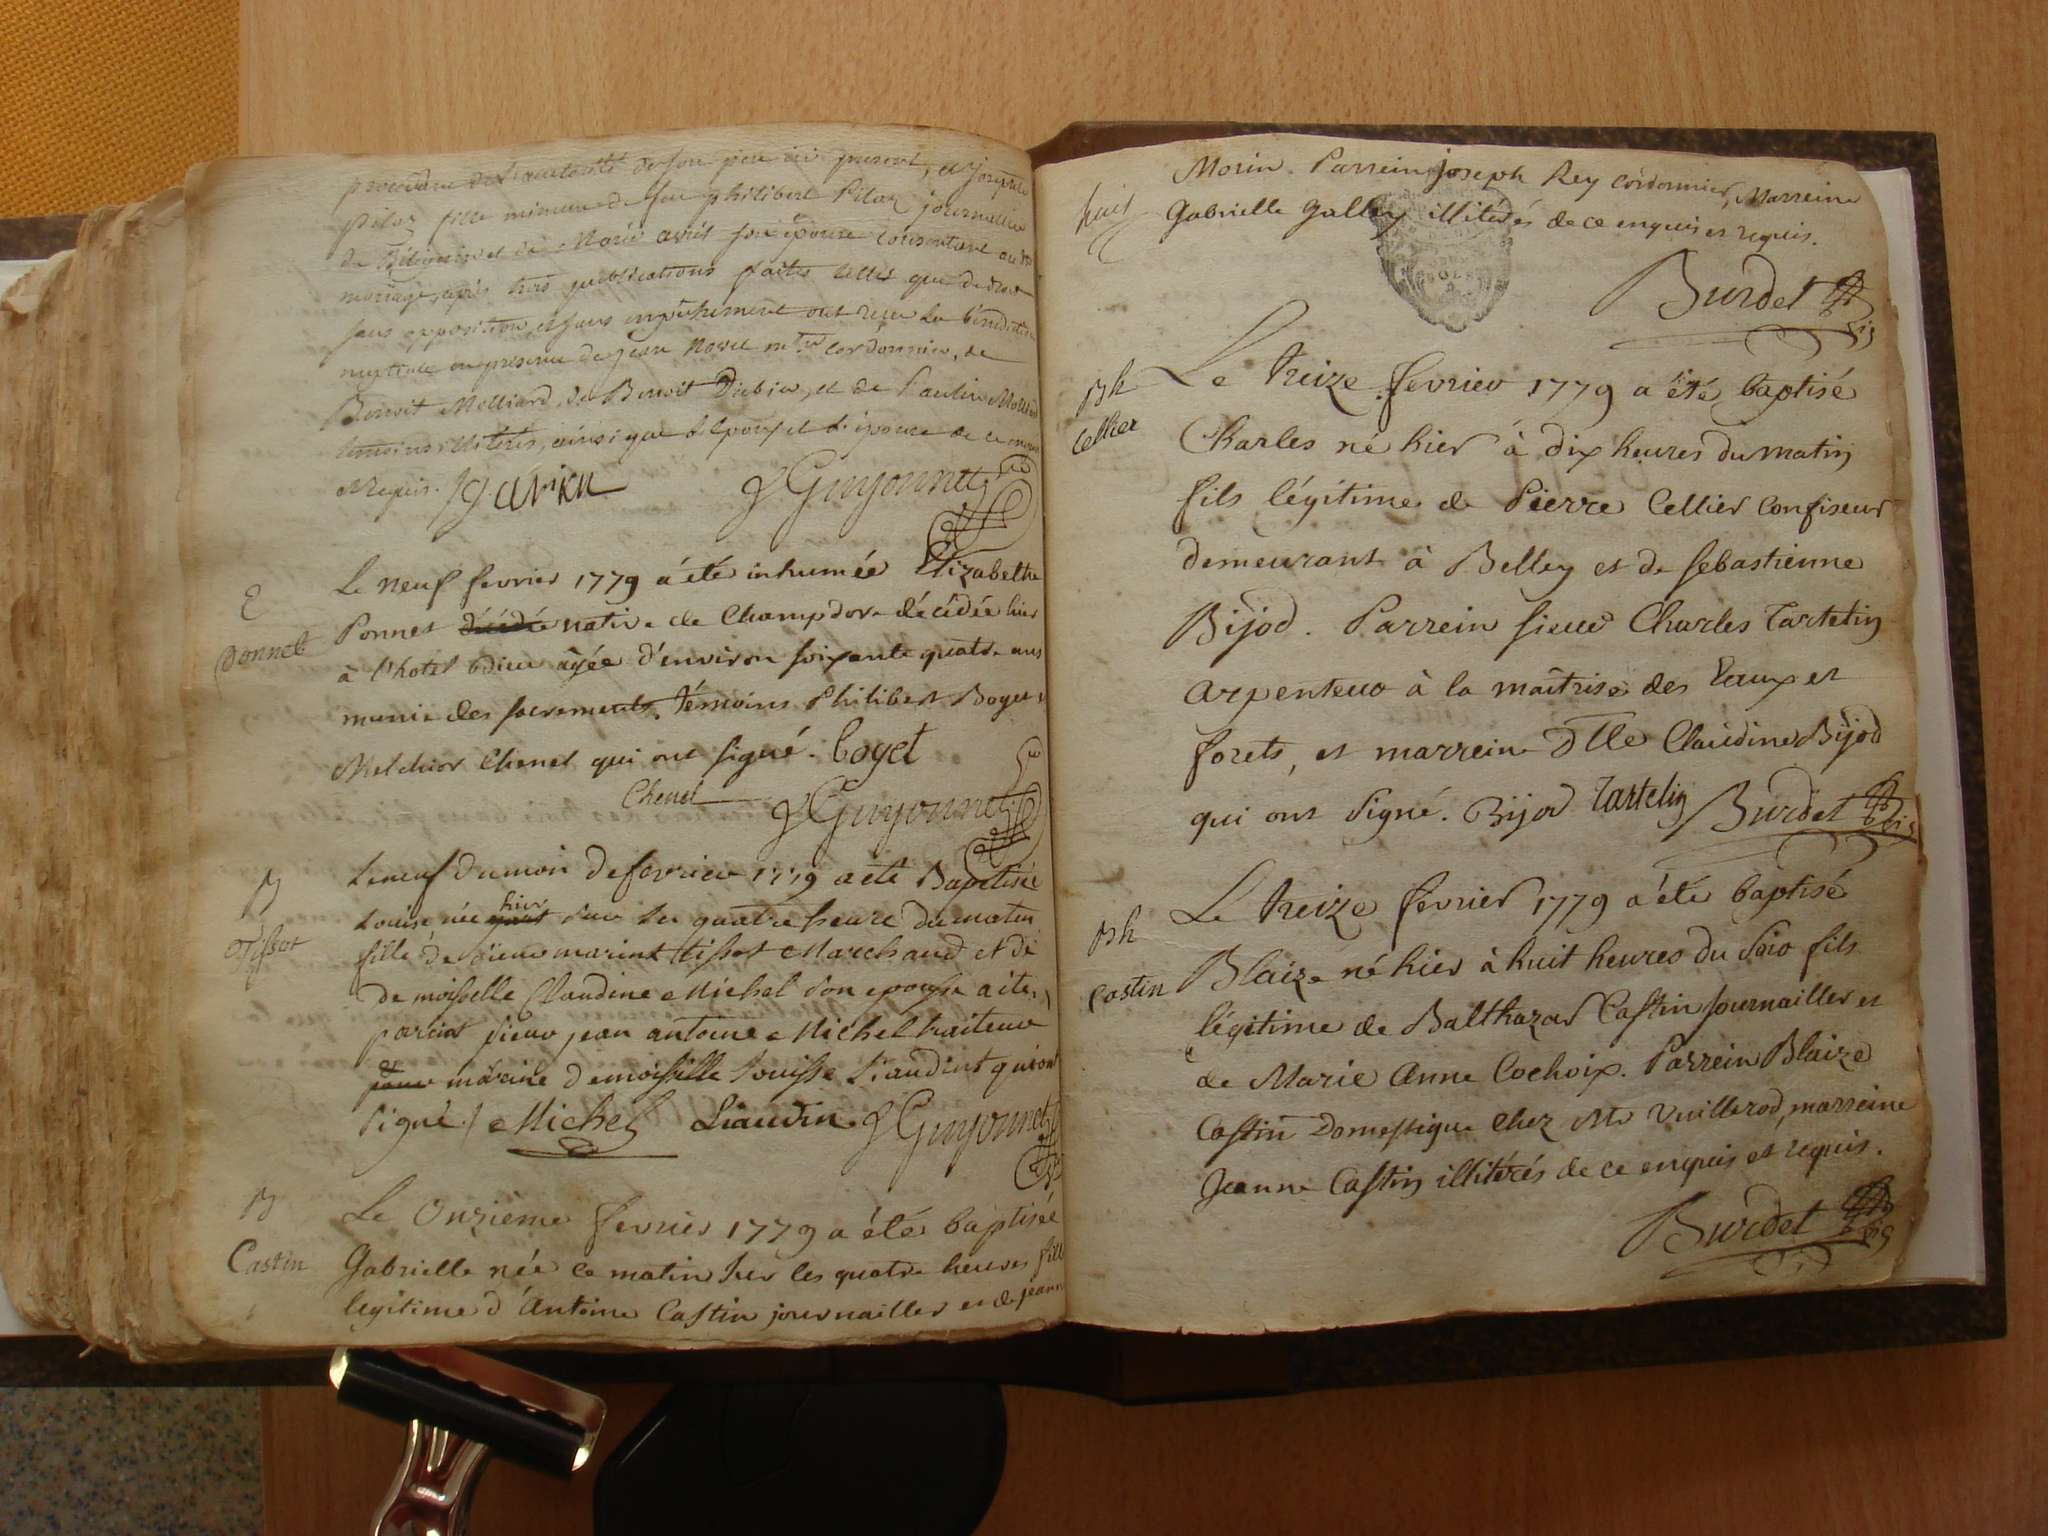 procedant de l'autorité de son père ici present, et josephte
Pilaz fille mineure de feu philibert Pilaz journalier
de et de Marie avril son épouse consentant au dt
mariage, après trois publications faites telles que de droit
sans opposition, et sans empêchement ont reçu la bénédiction
nuptiale en presence de jean cordonnier, de
Benoit Melliard, de Benoit Dubiez, et de
temoins illiterés, ainsi que l'époux et l'épouse de ce enquis
et requis. Guyonnet
E
Ponnet
Le neuf fevrier 1779 a été inhumée Elizabethe
Ponnet décédée native de Champdor décédée hier
à l'hotel dieu agée d'environ soixante quatre ans
munie des sacrements. témoins Philibert Boyet
Melchior Chenet qui ont signé. boyet
Chenet Guyonnet
B
Tissot
Le neuf du mois de fevrier 1779 a été Baptisée
Louise née hier sur les quatre heure du matin
fille de sieur marin tissot Marchand et de
demoiselle Claudine Michel son epouse a été
parain sieur jean antoine Michel traiteur
et maraine demoiselle Louisse Liaudint qui ont
signé / Michel Liaudin Guyonnet
B
Castin
Le Onzième fevrier 1779 a été baptisée
Gabrielle née ce matin sur les quatre heures fille
legitime d'Antoine Castin journaillier et de jeanne
huit
Morin. Parrein joseph Rey cordonnier, Marreine
Gabrielle Gallay illitérés de ce enquis et requis.
Burdet
Bh
Cellier
Le treize fevrier 1779 a été baptisé
Charles né hier à dix heures du matin
fils légitime de Pierre Cellier Confiseur
demeurant à Belley et de sebastienne
Bijod. Parrein sieur Charles Tartelin
arpenteur à la maîtrise des Eaux et
forets, et marreine Dlle Claudine Bijod
qui ont signé. Bijod Tartelin Burdet
Bh
Castin
Le treize fevrier 1779 a été baptisé
Blaize né hier à huit heures du soir fils
légitime de Balthazar Castin journaillier et
de Marie Anne Cochoix. Parrein Blaize
Castin Domestique chez Mr Vuillerod, marreine
Jeanne Castin illitérés de ce enquis et requis.
Burdet